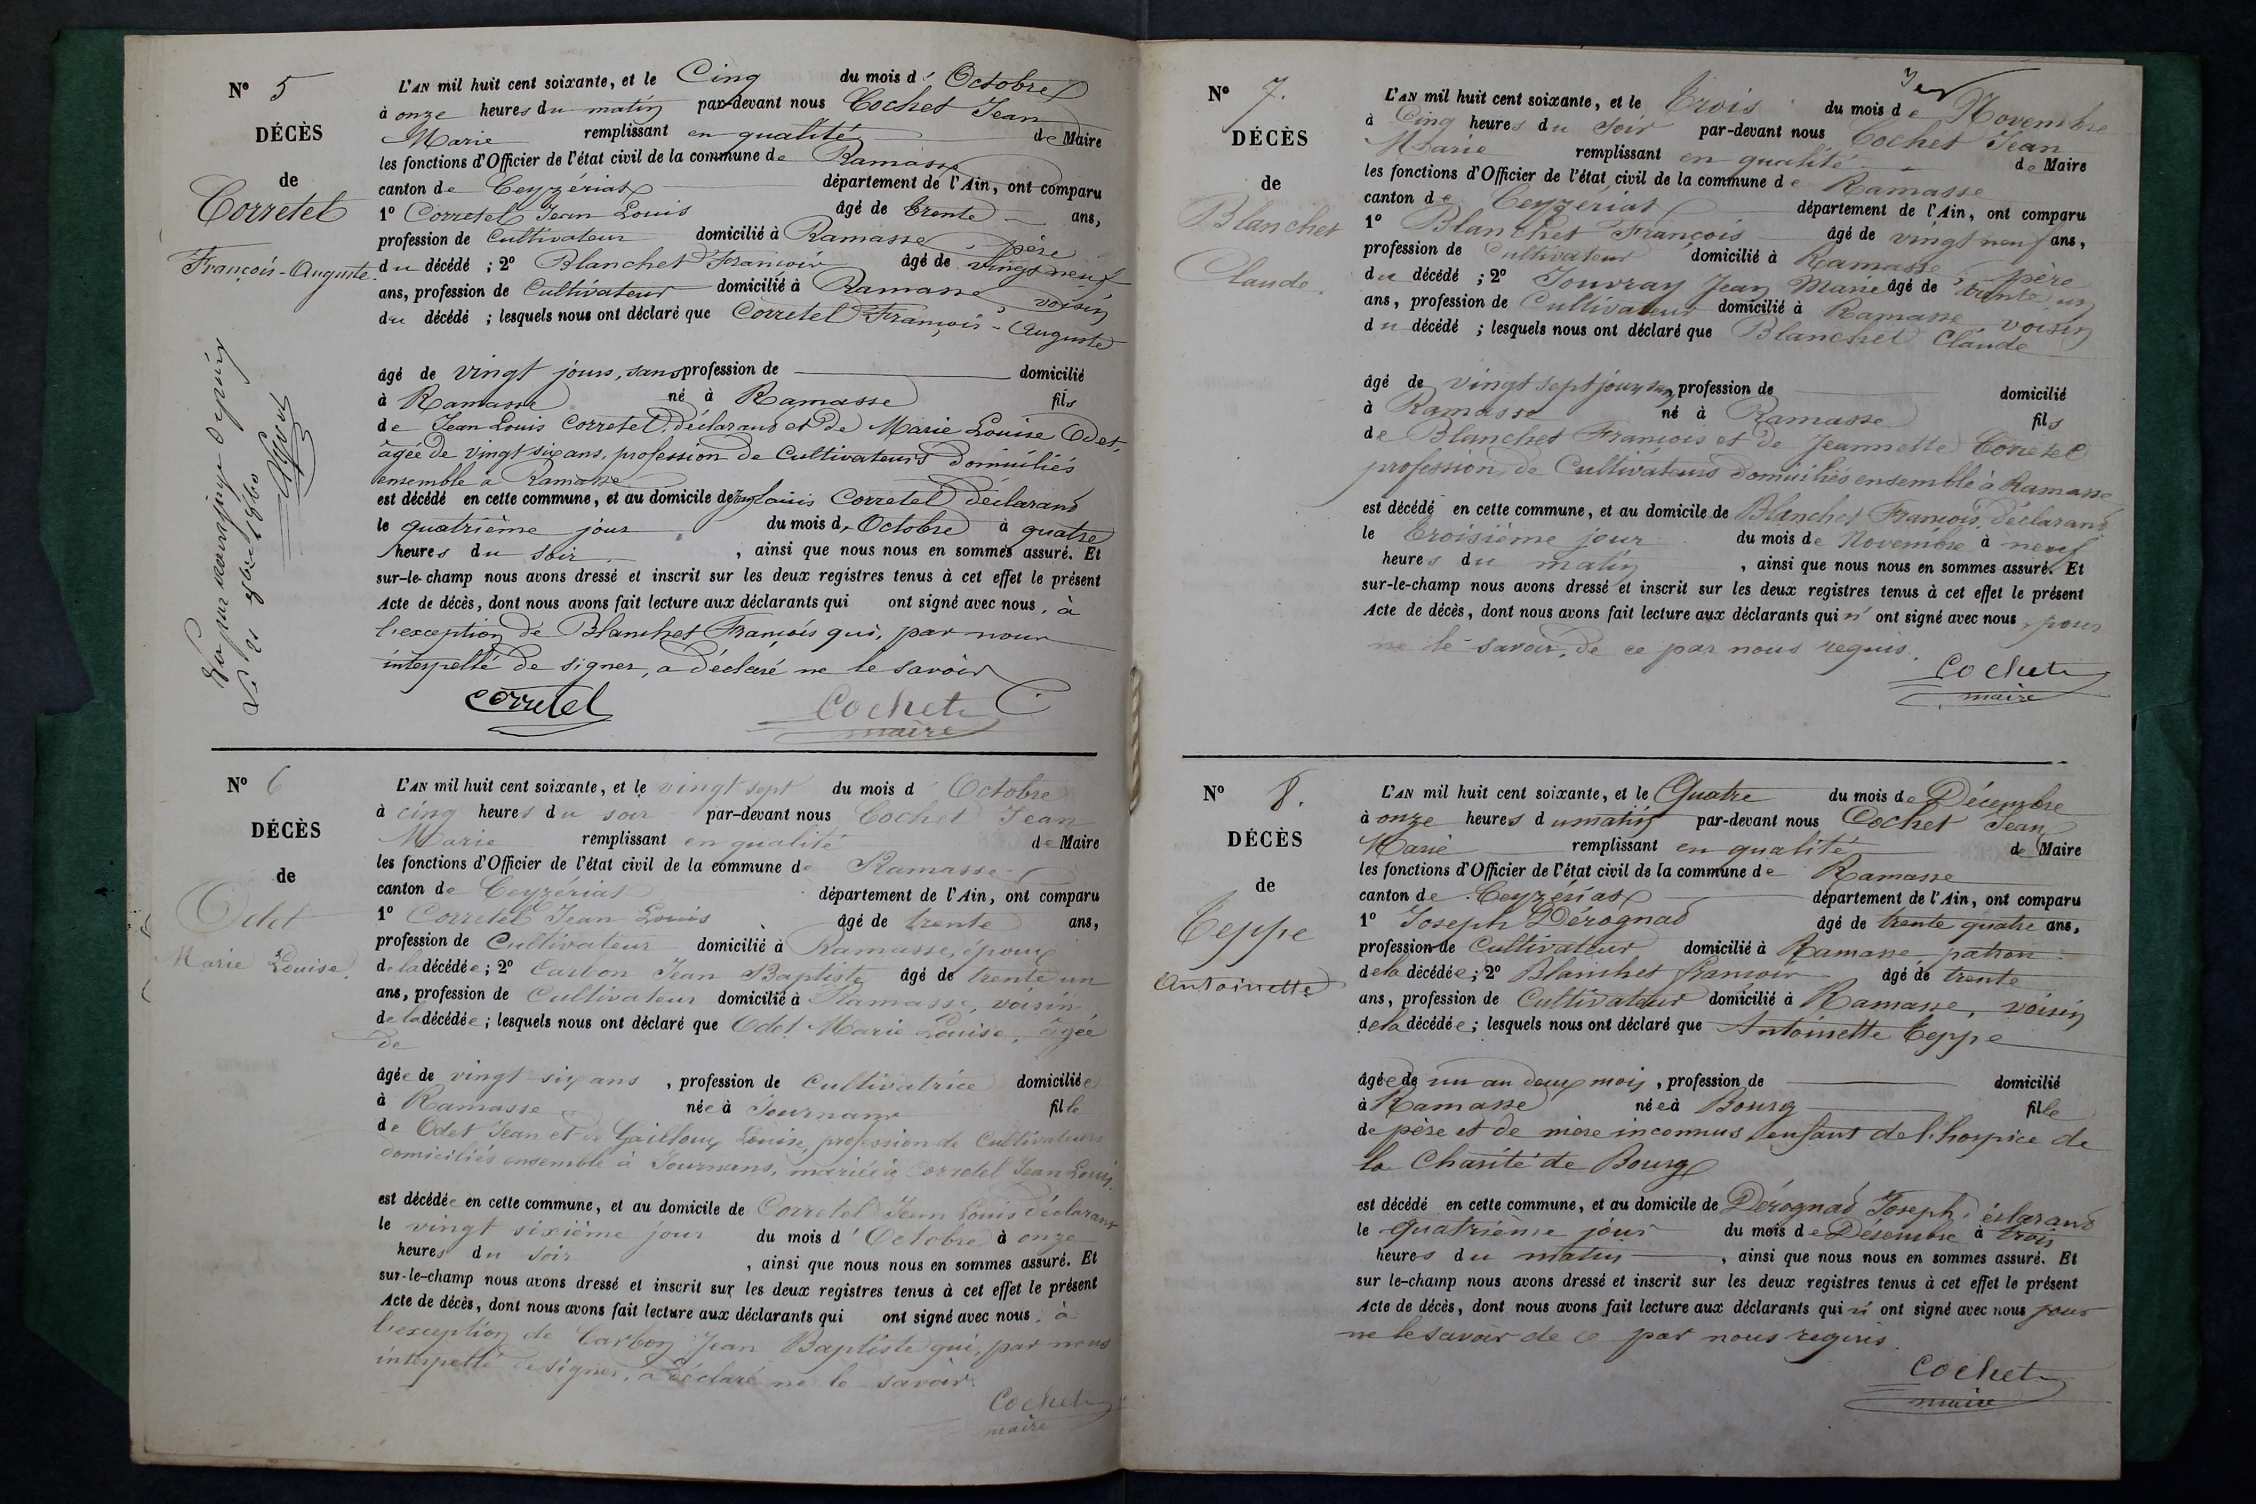 Nº 5
DÉCÈS
de
Corretel
François-Auguste.
L'AN mil huit cent soixante, et le Cinq du mois d'Octobre
à onze heures du matin par-devant nous Cochet Jean
Marie remplissant en qualité de Maire
les fonctions d'Officier de l'état civil de la commune de Ramasse
canton de Ceyzériat département de l'Ain, ont comparu
1º Corretel Jean Louis âgé de trente ans,
profession de Cultivateur domicilié à Ramasse, père
du décédé ; 2º Blanchet François âgé de vingt neuf
ans, profession de Cultivateur domicilié à Ramasse, voisin
du décédé ; lesquels nous ont déclaré que Corretel François-Auguste
âgé de vingt jours, sans profession de domicilié
à Ramasse né à Ramasse fils
de Jean Louis Corretel, déclarant et de Marie Louise Odet,
âgée de vingt six ans, profession de Cultivateurs domiciliés
ensemble à Ramasse
est décédé en cette commune, et au domicile de Jean Louis Corretel déclarant
le quatrième jour du mois d'Octobre à quatre
heures du soir, ainsi que nous nous en sommes assuré. Et
sur-le-champ nous avons dressé et inscrit sur les deux registres tenus à cet effet le présent
Acte de décès, dont nous avons fait lecture aux déclarants qui ont signé avec nous, à
l'exception de Blanchet François qui, par nous
interpellé de signer, a déclaré ne le savoir
Corretel
Cochet
maire
Nº 6
DÉCÈS
de
Odet
Marie Louise.
L'AN mil huit cent soixante, et le vingt sept du mois d'Octobre
à cinq heures du soir par-devant nous Cochet Jean
Marie remplissant en qualité de Maire
les fonctions d'Officier de l'état civil de la commune de Ramasse
canton de Ceyzériat département de l'Ain, ont comparu
1º Corretel Jean Louis âgé de trente ans,
profession de Cultivateur domicilié à Ramasse, époux
de la décédée ; 2º Carbon Jean Baptiste âgé de trente un
ans, profession de Cultivateur domicilié à Ramasse, voisin
de la décédée ; lesquels nous ont déclaré que Odet Marie Louise, âgée
de
âgée de vingt-six ans, profession de cultivatrice domiciliée
à Ramasse née à Journans fille
de Odet Jean et de Louise, profession de Cultivateurs
domiciliés ensemble à Journans, mariée à Corretel Jean Louis
est décédée en cette commune, et au domicile de Corretel Jean Louis déclarant
le vingt sixième jour du mois d'Octobre à onze
heures du soir, ainsi que nous nous en sommes assuré. Et
sur-le-champ nous avons dressé et inscrit sur les deux registres tenus à cet effet le présent
Acte de décès, dont nous avons fait lecture aux déclarants qui ont signé avec nous, à
l'exception de Carbon Jean Baptiste qui, par nous
interpellé de signer, a déclaré ne le savoir.
Cochet
maire
Nº 7.
DÉCÈS
de
Blanchet
Claude.
L'AN mil huit cent soixante, et le Trois du mois de Novembre
à Cinq heures du soir par-devant nous Cochet Jean
Marie remplissant en qualité de Maire
les fonctions d'Officier de l'état civil de la commune de Ramasse
canton de Ceyzériat département de l'Ain, ont comparu
1º Blanchet François âgé de vingt neuf ans,
profession de Cultivateur domicilié à Ramasse, père
du décédé ; 2º Jouvray Jean Marie âgé de trente un
ans, profession de Cultivateur domicilié à Ramasse voisin
du décédé ; lesquels nous ont déclaré que Blanchet Claude
âgé de vingt sept jours sans profession de domicilié
à Ramasse né à Ramasse fils
de Blanchet François et de Jeannette Corretel
profession de Cultivateurs domiciliés ensemble à Ramasse
est décédé en cette commune, et au domicile de Blanchet François, déclarant
le troisième jour du mois de Novembre à neuf
heures du matin, ainsi que nous nous en sommes assuré. Et
sur-le-champ nous avons dressé et inscrit sur les deux registres tenus à cet effet le présent
Acte de décès, dont nous avons fait lecture aux déclarants qui n'ont signé avec nous, pour
ne le savoir, de ce par nous requis.
Cochet
maire
Nº 8.
DÉCÈS
de
Teppe
Antoinette
L'AN mil huit cent soixante, et le Quatre du mois de Décembre
à onze heures du matin par-devant nous Cochet Jean
Marie remplissant en qualité de Maire
les fonctions d'Officier de l'état civil de la commune de Ramasse
canton de Ceyzériat département de l'Ain, ont comparu
1º Joseph Dérognat âgé de trente quatre ans,
profession de Cultivateur domicilié à Ramasse, patron
de la décédée ; 2º Blanchet françois âgé de trente
ans, profession de Cultivateur domicilié à Ramasse, voisin
de la décédée ; lesquels nous ont déclaré que Antoinette Teppe
âgée de un an deux mois, profession de domicilié
à Ramasse née à Bourg fille
de père et de mère inconnus enfant de l'hospice de
la Charité de Bourg
est décédé en cette commune, et au domicile de Dérognat Joseph,
le quatrième jour du mois de Désembre à trois
heures du matin, ainsi que nous nous en sommes assuré. Et
sur le-champ nous avons dressé et inscrit sur les deux registres tenus à cet effet le présent
Acte de décès, dont nous avons fait lecture aux déclarants qui n'ont signé avec nous pour
ne le savoir de ce par nous requis.
Cochet
maire